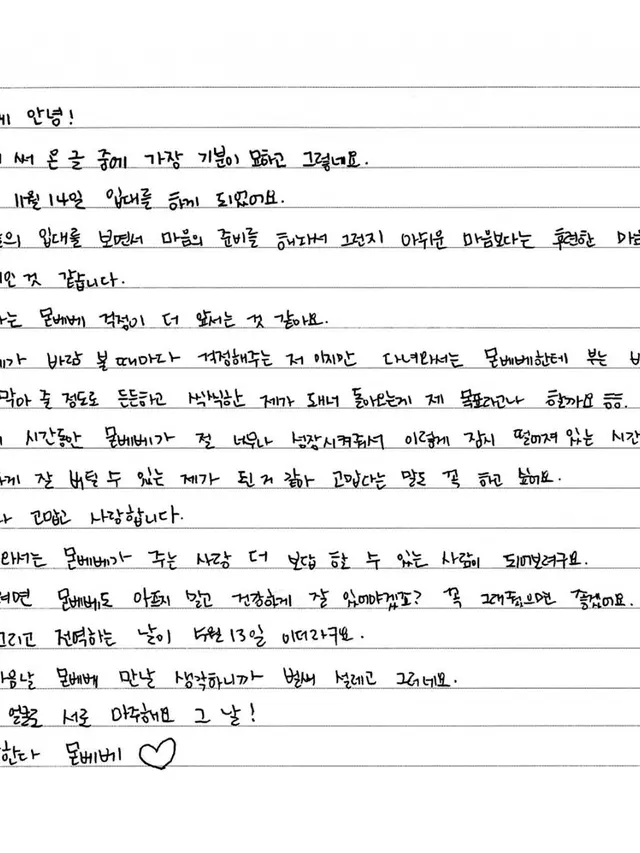 안녕!
써 온 글 중에 가장 기분이 묘하고 그렇네요.
11월 14일 입대를 하게 되었어요.
입대를 보면서 마음의 준비를 해놔서 그런지 아쉬운 마음보다는 후련한
것 같습니다.
몬베베 걱정이 더 앞서는 것 같아요.
바람 불 때마다 걱정해주는 저 이지만 다녀와서는 몬베베한테 부는
막아 줄 정도로 든든하고 씩씩한 제가 돼서 돌아오는게 제 목표라고나 할까요 흠.
시간동안 몬베베가 절 너무나 성장시켜줘서 이렇게 잠시 떨어져 있는 시간
잘 버틸 수 있는 제가 된 거 같아 고맙다는 말도 꼭 하고 싶어요.
고맙고 사랑합니다.
몬베베가 주는 사랑 더 보답 할 수 있는 사람이 되어보려구요.
몬베베도 아프지 말고 건강하게 잘 있어야겠죠? 꼭 그래줬으면 좋겠어요.
그리고 전역하는 날이 5월 13일 이더라구요.
몬베베 만날 생각하니까 벌써 설레고 그러네요.
얼굴로 서로 마주해요 그 날!
몬베베 ♡